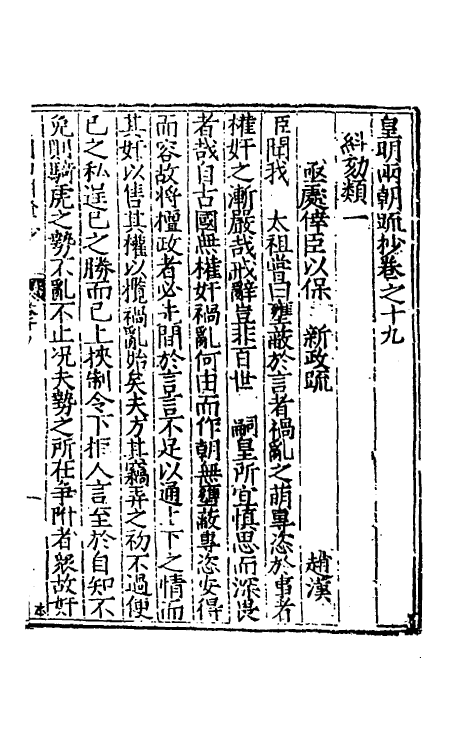 皇明兩朝疏抄卷之十九
糾劾類一
亟處倖臣以保 新政疏 趙漢
臣聞我 太祖嘗曰壅蔽於言者禍亂之萌專恣於事者
權奸之漸嚴哉戒辭豈非百世 嗣皇所宜慎思而深畏
者哉自古國無權奸禍亂何由而作朝無壅蔽專恣安得
而容故將擅政者必先間於言言不足以通上下之情而
其奸以售其權以攬禍亂始矣夫方其竊弄之初不過便
已之私逞已之勝而已上挾制令下拒人言至於自知不
免則騎虎之勢不亂不止況夫勢之所在爭附者眾故奸